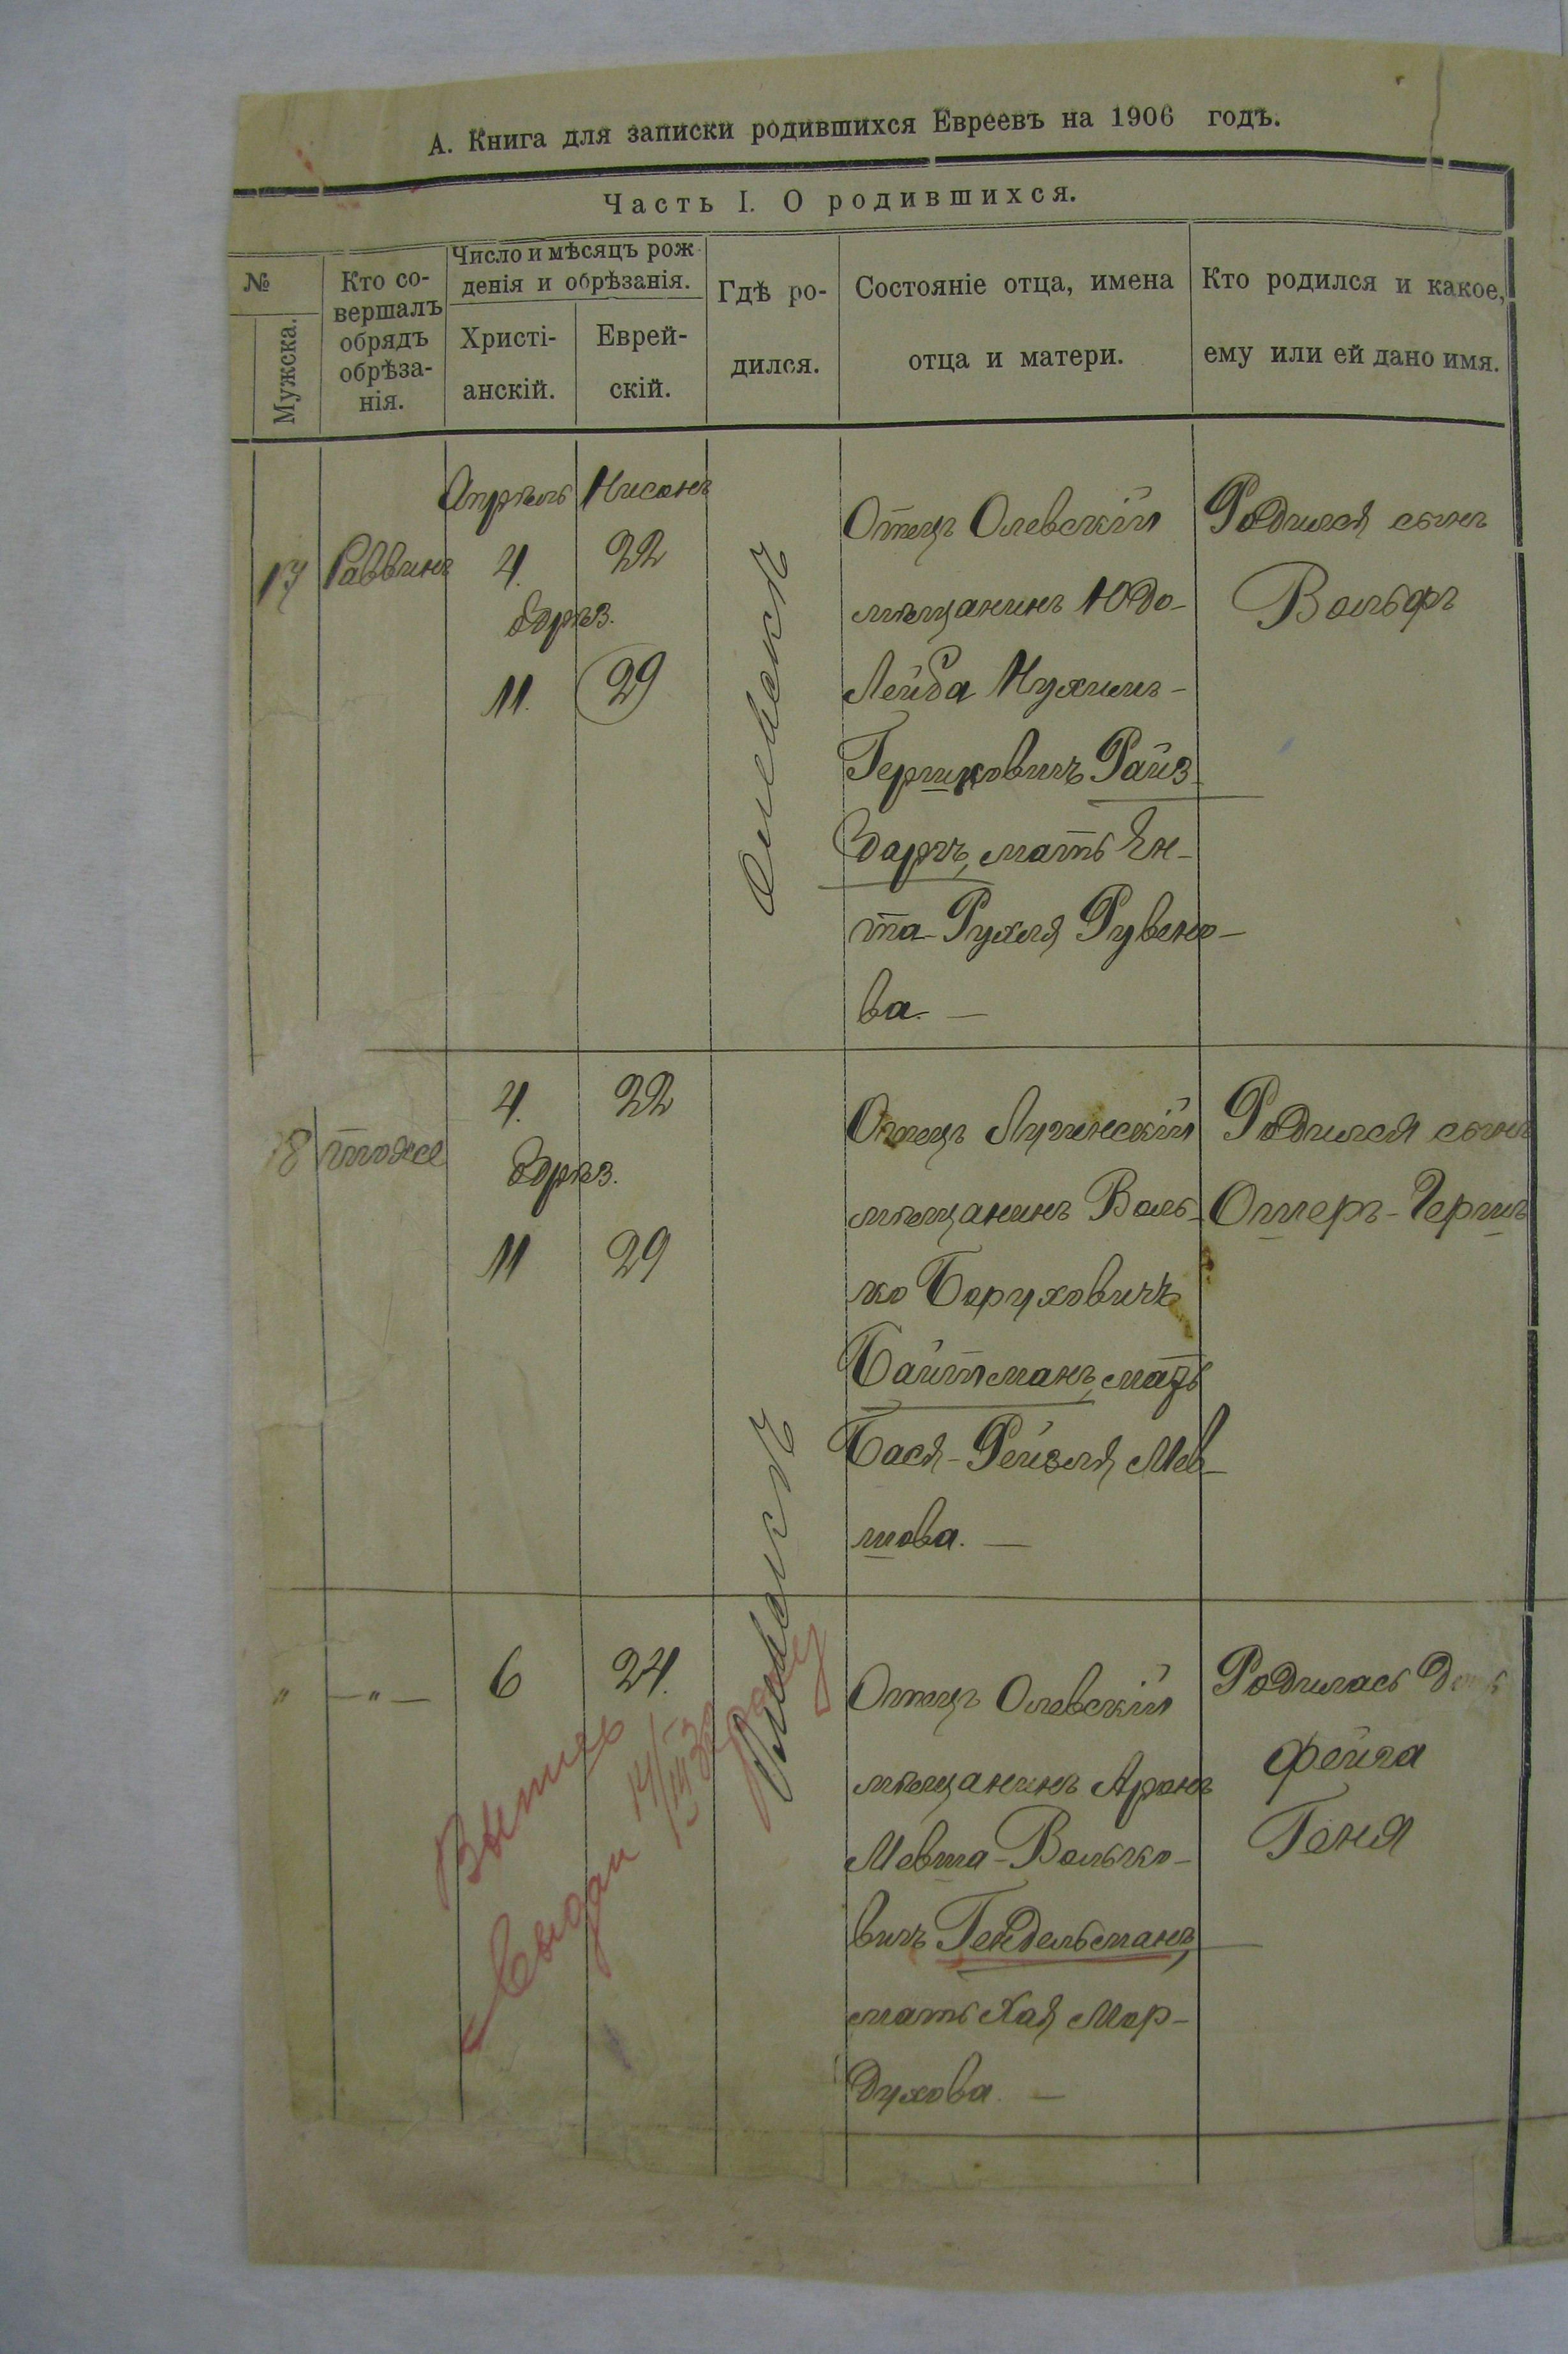 А. Книга для записки родившихся Евреевъ на 1906 годъ.
Часть I. О родившихся.
№
Мужска.
Кто со-
вершалъ
обрядъ
обрѣза-
нія.
Число и мѣсяцъ рож
денія и обрѣзанія.
Христі-
анскій.
Еврей-
скій.
Гдѣ ро-
дился.
Состояніе отца, имена
отца и матери.
Кто родился и какое,
ему или ей дано имя.
17
Раввинъ
Апрѣль
4.
обрѣз.
11.
Нисонъ
22
29
Олевскъ
Отецъ Олевскій
мѣщанинъ Юдо-
Лейба Нухим-
Гершковичъ Райз-
бартъ, мать Ен-
та-Рухля Рувено-
ва. —
Родился сынъ
Вольфъ
8
тоже
4.
обрѣз.
11
22
29
Отецъ Лугинскій
мѣщанинъ Воль-
ко Боруховичъ
Байтманъ, мать
Бася-Рейзля Мев-
шова. —
Родился сынъ
Ошеръ-Герш
"
—"—
6
24.
Олевскъ
Отецъ Олевскій
мѣщанинъ Аронъ
Мевша-Волько-
вичъ Гендельманъ,
мать Хая Мор-
духова. —
Родилась
Фейга
Геня
Выпись
выдан 14/III 30